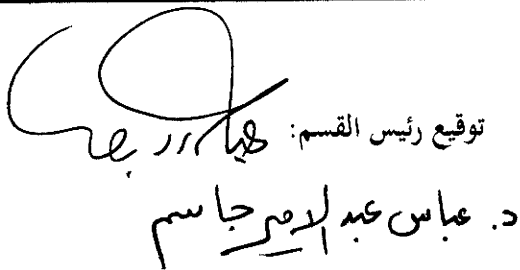 توقيع رئيس القسم:
د. عباس عبد الامير جاسم